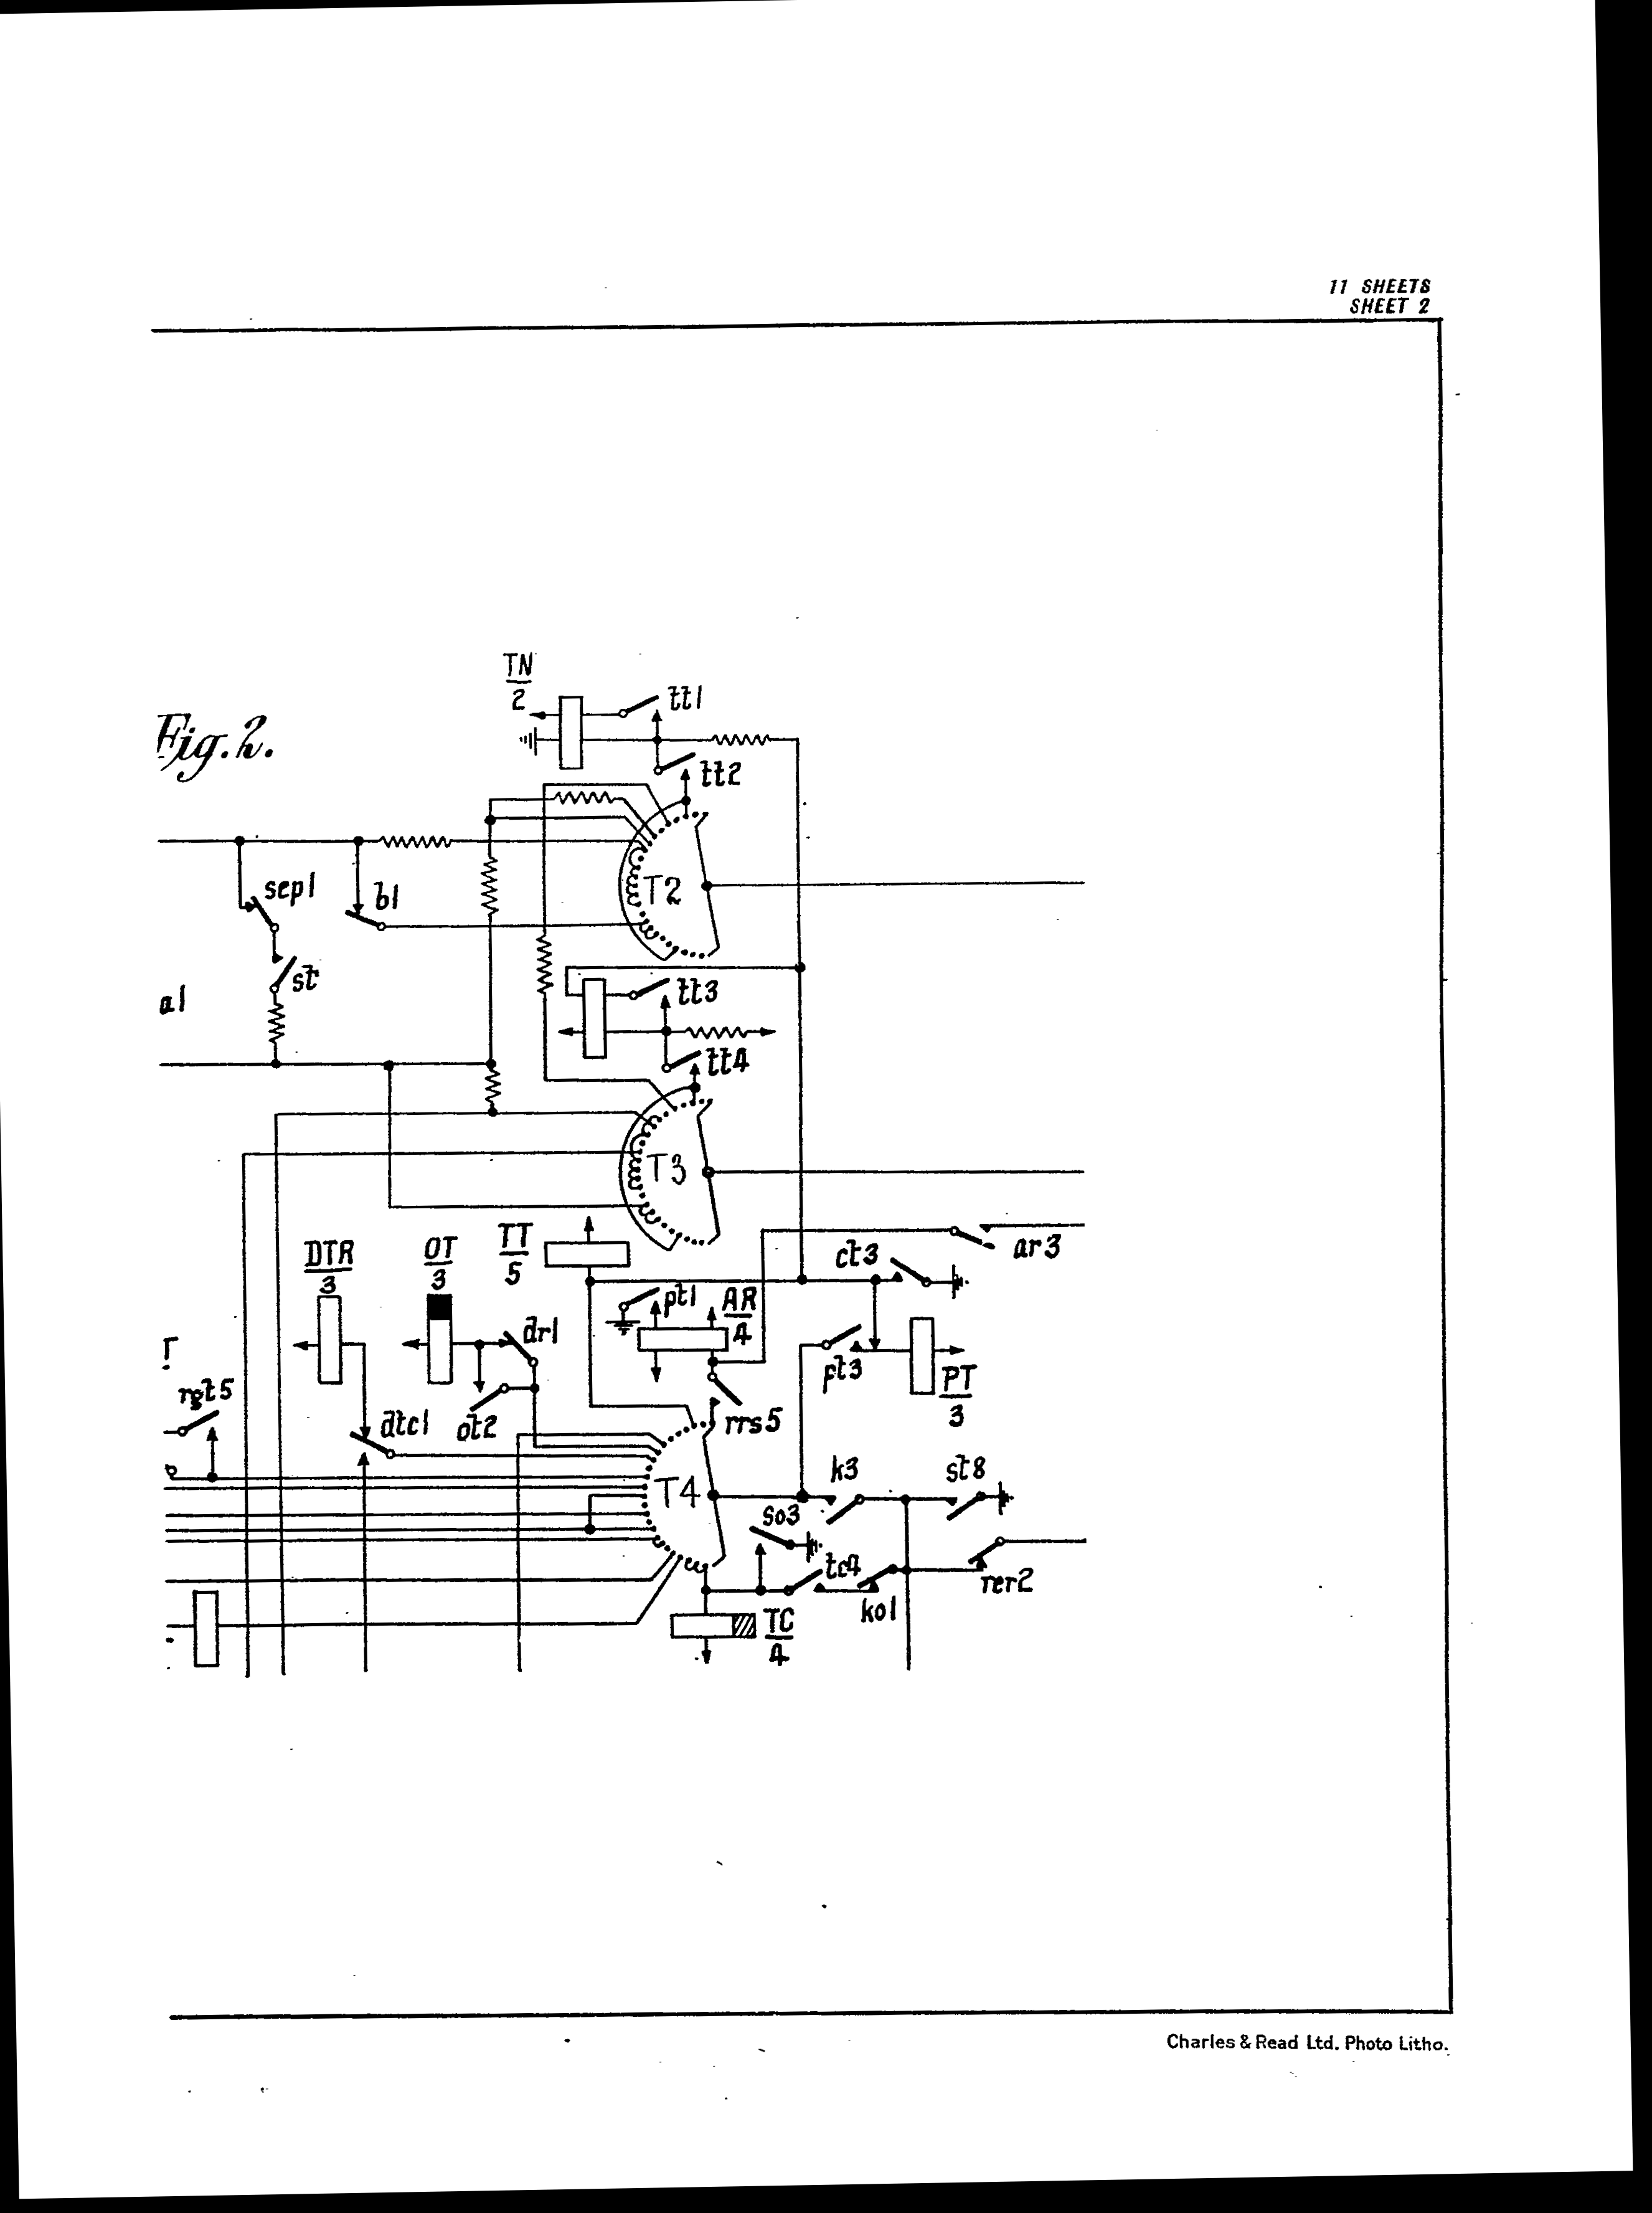 11 SHEETS
SHEET 2
TN
2
tt1
Fig. 2.
tt2
T2
sep1
b1
st
a1
tt3
tt4
T3
DTR
3
OT
3
TT
5
ct3
ar3
pt1
AR
4
dr1
pt3
PT
3
rgt5
dtc1
ot2
rrs5
T4
k3
st8
so3
tc4
ko1
rer2
TC
4
Charles & Read Ltd. Photo Litho.